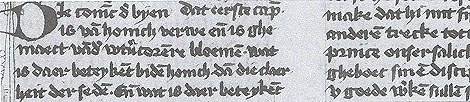 Die comē d byen dat eerste cap.
is vā honich verwe en is ghe
maect vād wtu'corēre bloemē. wat
is daer beteykēt bidē honich. dā die claer
heit der seden. En wat is daer beteykent
make dat hi mit si
anderē trecke tott
prince onser salich
gheboet sinē disci
goede wke sullen